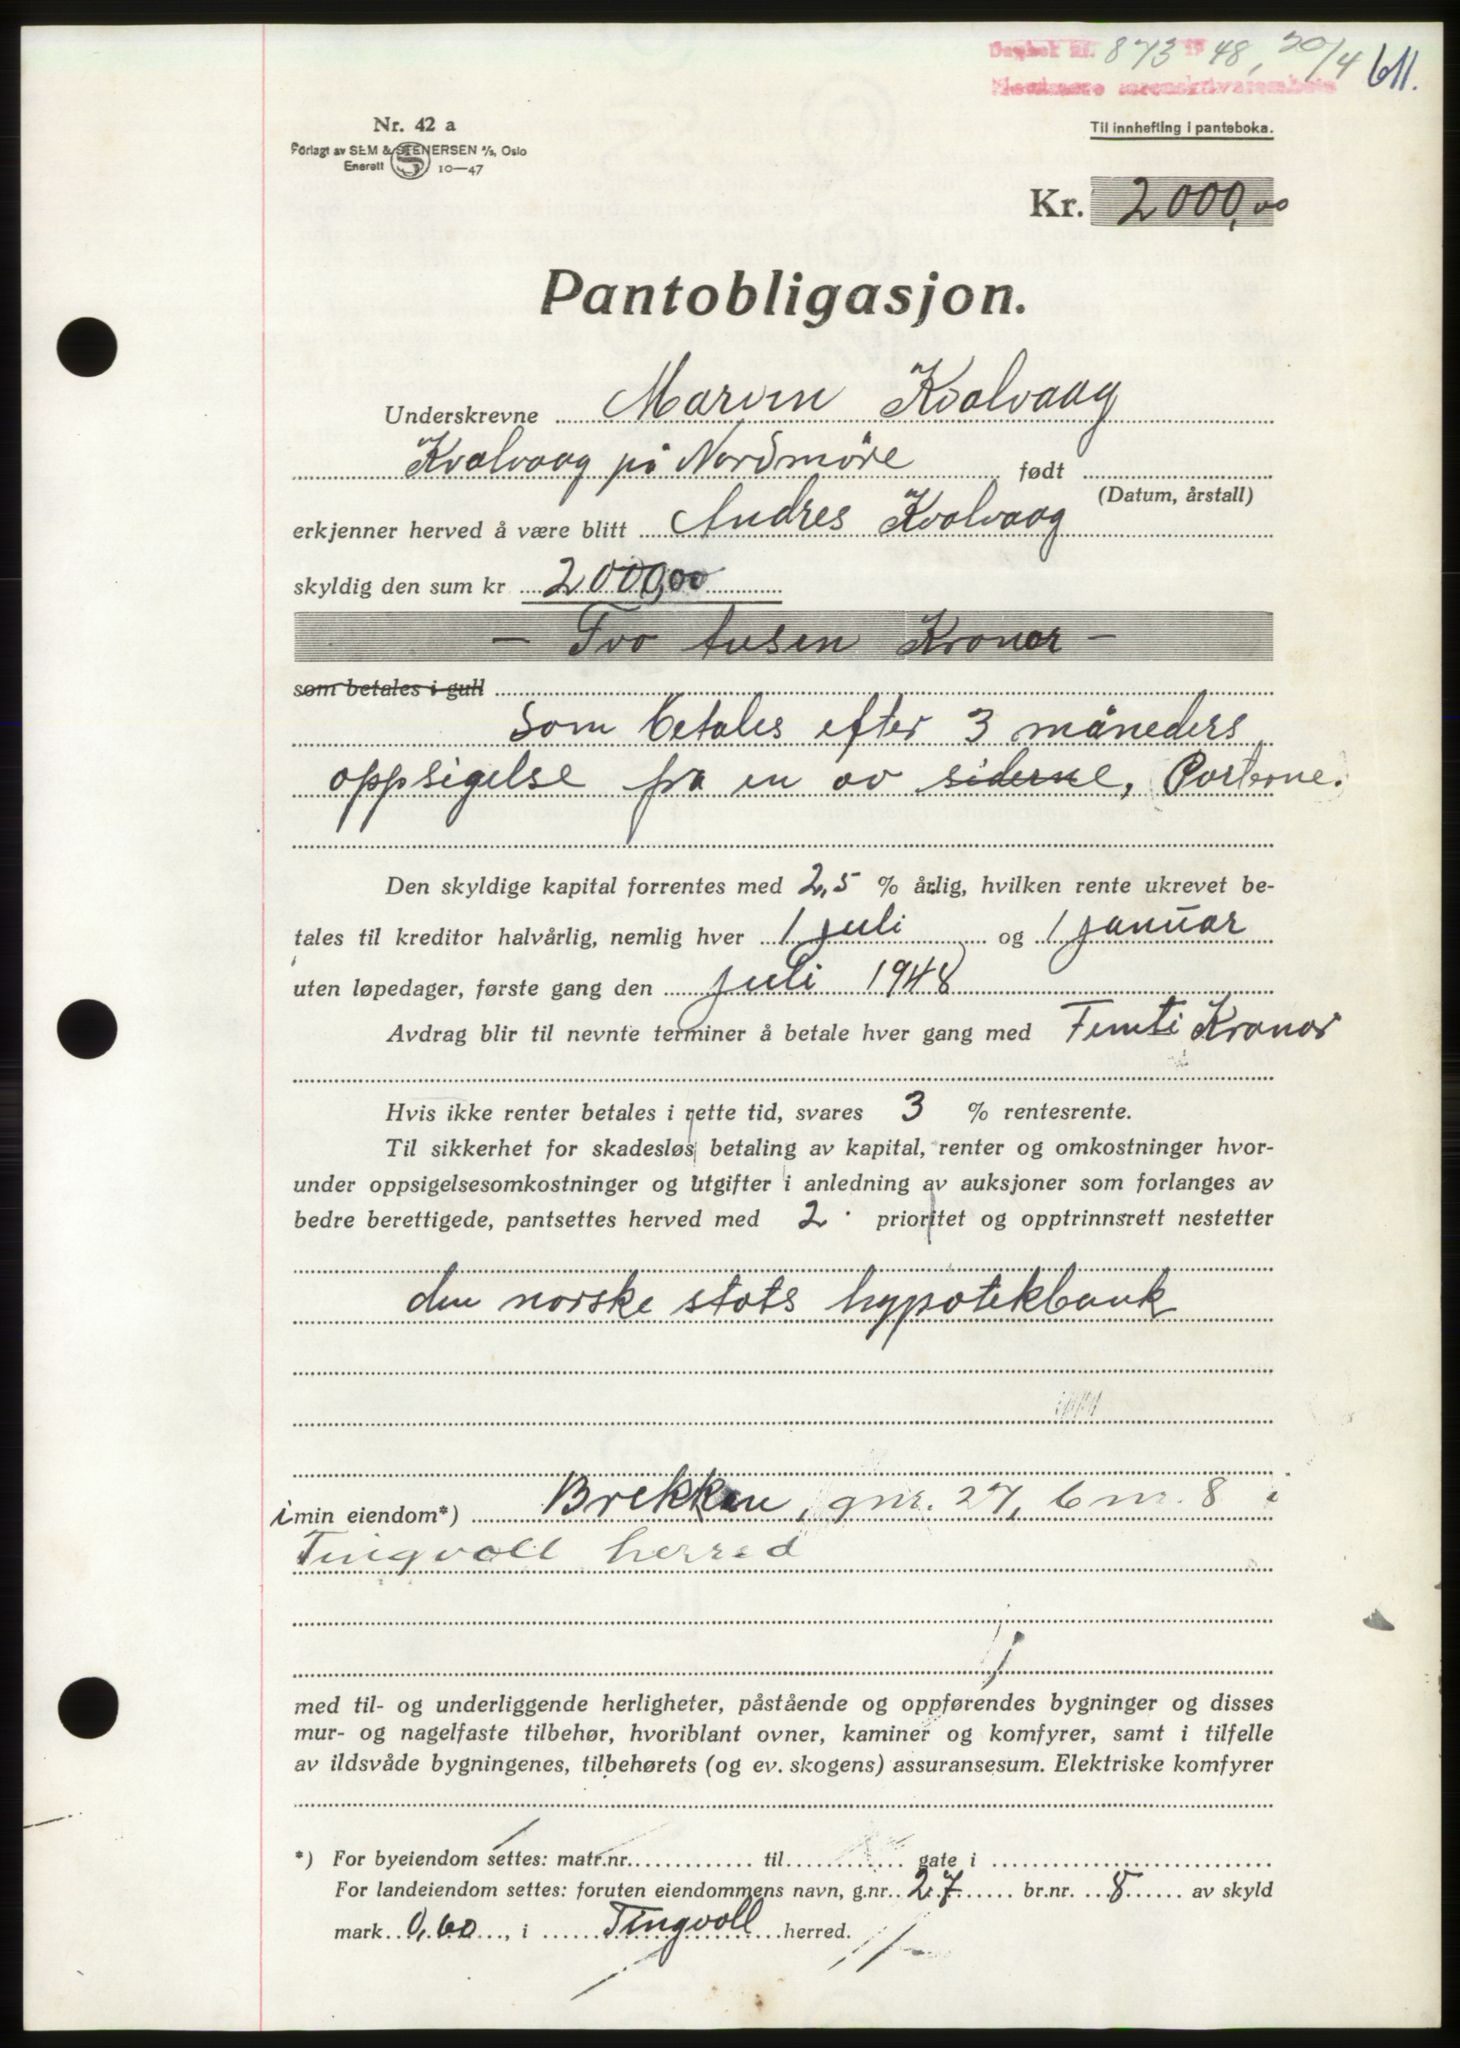 Dagbok nr. 873 1948, 20/4 611.
Nordmøre sorenskriverembete
Nr. 42 a
Forlagt av SEM & STENERSEN A/S, Oslo
Enerett S 10—47
Til innhefting i panteboka.
Kr. 2000,00
Pantobligasjon.
Underskrevne Marvin Kvalvaag
Kvalvaag på Nordmöre født
(Datum, årstall)
erkjenner herved å være blitt Andres Kvalvaag
skyldig den sum kr 2000,00
— Tvo tusen Kroner —
som betales i gull
Som betales efter 3 måneders
oppsigelse fra en av siderne, Parterne.
Den skyldige kapital forrentes med 2,5 % årlig, hvilken rente ukrevet be-
tales til kreditor halvårlig, nemlig hver 1 juli og 1 januar
uten løpedager, første gang den juli 1948
Avdrag blir til nevnte terminer å betale hver gang med Femti Kroner
Hvis ikke renter betales i rette tid, svares 3 % rentesrente.
Til sikkerhet for skadesløs betaling av kapital, renter og omkostninger hvor-
under oppsigelsesomkostninger og utgifter i anledning av auksjoner som forlanges av
bedre berettigede, pantsettes herved med 2. prioritet og opptrinnsrett nestetter
den norske stats hypotekbank
i min eiendom*) Brekken, gnr. 27, bnr. 8 i
Tingvoll herred
med til- og underliggende herligheter, påstående og oppførendes bygninger og disses
mur- og nagelfaste tilbehør, hvoriblant ovner, kaminer og komfyrer, samt i tilfelle
av ildsvåde bygningenes, tilbehørets (og ev. skogens) assuransesum. Elektriske komfyrer
*) For byeiendom settes: matr.nr. til gate i
For landeiendom settes: foruten eiendommens navn, g.nr. 27 br.nr. 8 av skyld
mark 0,60, i Tingvoll herred.